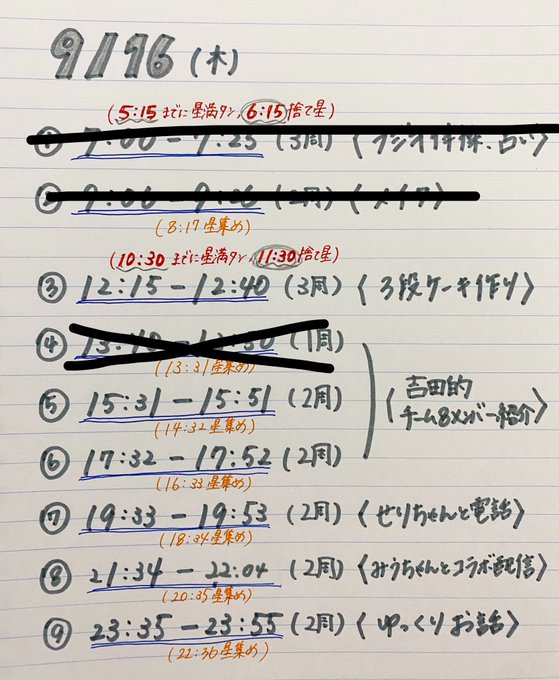 9/16 (木)
(5:15 までに星満タン、6:15 捨て星)
① 7:00 - 7:25 (3周) 〈ラジオ体操、占い〉
② 9:06 - 9:26 (2周) 〈メイク〉
(8:17 星集め)
(10:30 までに星満タン、11:30 捨て星)
③ 12:15 - 12:40 (3周) 〈3段ケーキ作り〉
④ (1周)
(13:31 星集め)
⑤ 15:31 - 15:51 (2周)
(14:32 星集め)
〈吉田的
チーム8メンバー紹介〉
⑥ 17:32 - 17:52 (2周)
(16:33 星集め)
⑦ 19:33 - 19:53 (2周) 〈せりちゃんと電話〉
(18:34 星集め)
⑧ 21:34 - 22:04 (2周) 〈みうちゃんとコラボ配信〉
(20:35 星集め)
⑨ 23:35 - 23:55 (2周) 〈ゆっくりお話〉
(22:36 星集め)